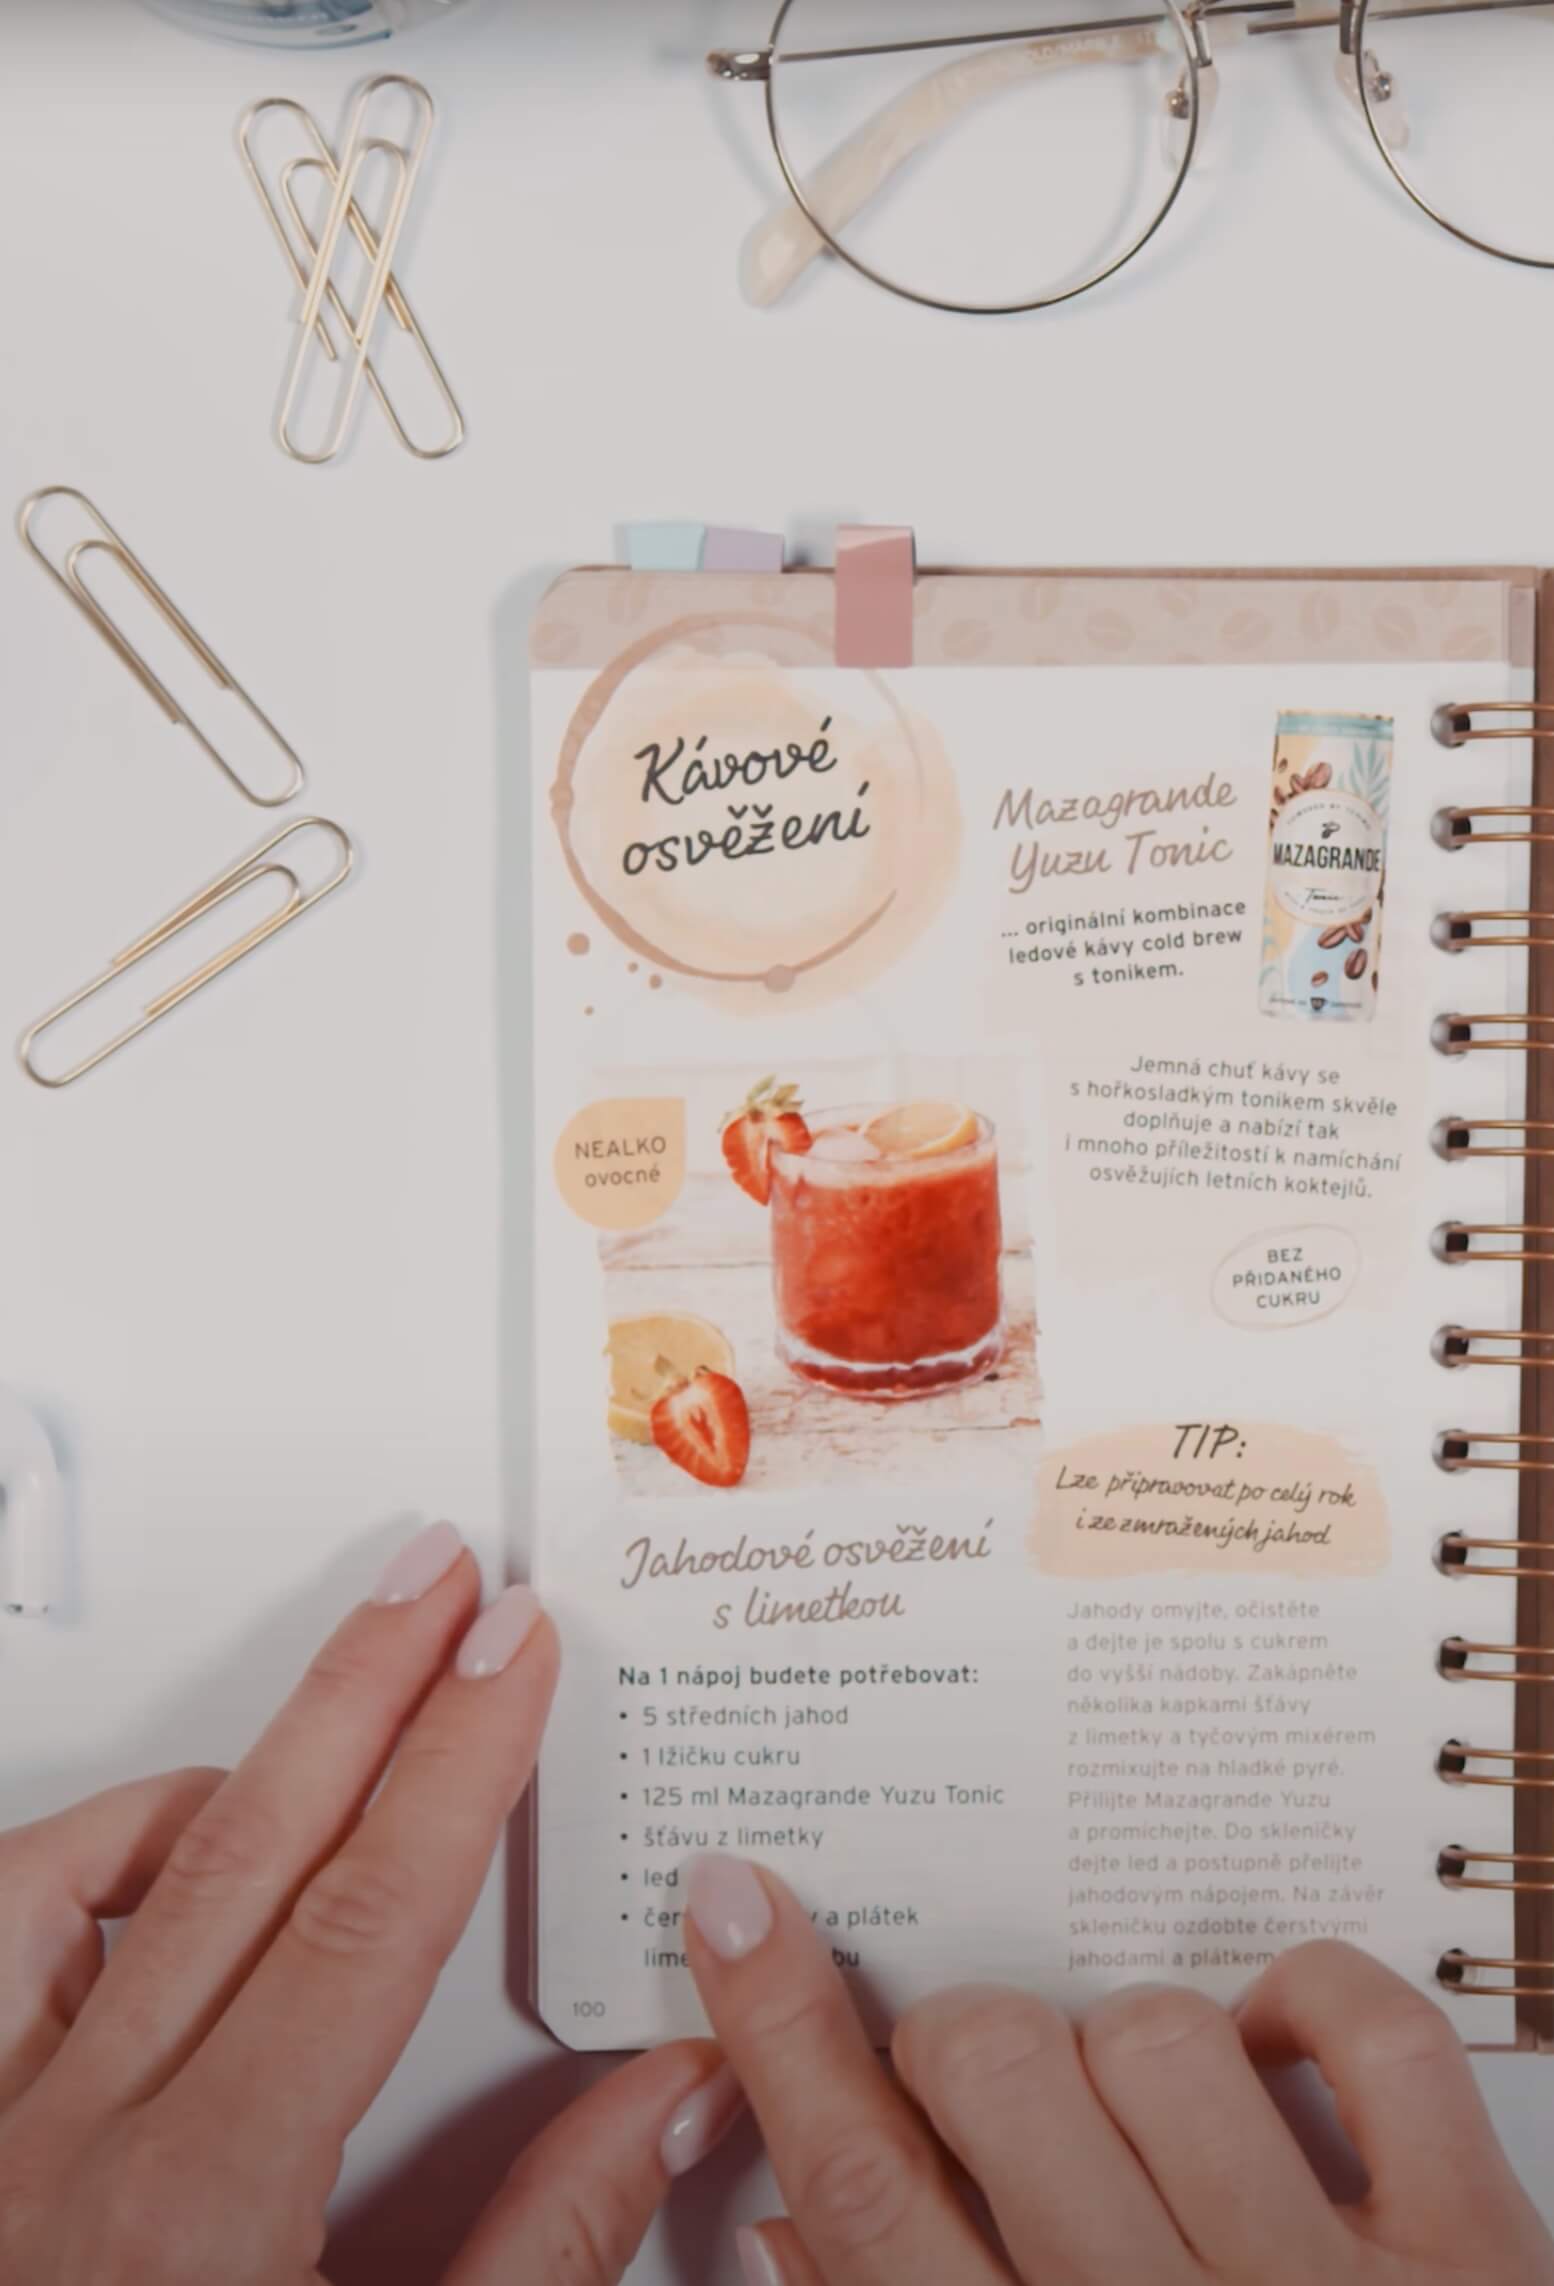 Kávové
osvěžení
Mazagrande
Yuzu Tonic
... originální kombinace
ledové kávy cold brew
s tonikem.
MAZAGRANDE
Tonic
Jemná chuť kávy se
s hořkosladkým tonikem skvěle
doplňuje a nabízí tak
i mnoho příležitostí k namíchání
osvěžujích letních koktejlů.
BEZ
PŘIDANÉHO
CUKRU
NEALKO
ovocné
TIP:
Lze připravovat po celý rok
i ze zmražených jahod
Jahodové osvěžení
s limetkou
Na 1 nápoj budete potřebovat:
• 5 středních jahod
• 1 lžičku cukru
• 125 ml Mazagrande Yuzu Tonic
• šťávu z limetky
• led
• a plátek
Jahody omyjte, očistěte
a dejte je spolu s cukrem
do vyšší nádoby. Zakápněte
několika kapkami šťávy
z limetky a tyčovým mixérem
rozmixujte na hladké pyré.
Přilijte Mazagrande Yuzu
a promíchejte. Do skleničky
dejte led a postupně přelijte
jahodovým nápojem. Na závěr
skleničku ozdobte čerstvými
jahodami a plátkem
100